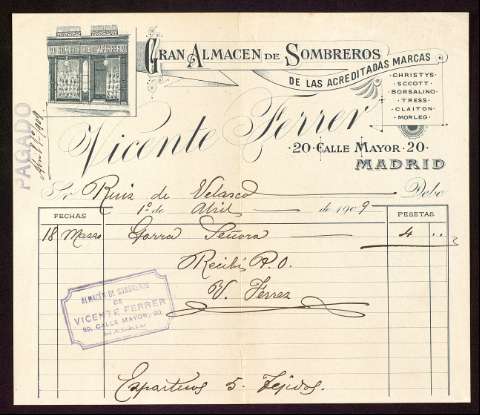 GRAN ALMACEN DE SOMBREROS
DE LAS ACREDITADAS MARCAS
CHRISTYS
SCCOTT
BORSALINO
TRESS
CLAITON
MORLEG
Vicente Ferrer
20 CALLE MAYOR 20
MADRID
PAGADO
Abril 1º 1909
Sr Ruiz de Velasco Debe
1º de Abril de 1909
FECHAS PESETAS
18 Marzo Gorra Señora 4 ..
Recibí P.O.
V. Ferrer
ALMACEN DE SOMBREROS
DE
VICENTE FERRER
20, CALLE MAYOR, 20
MADRID
Esparteros 5. Tejidos.